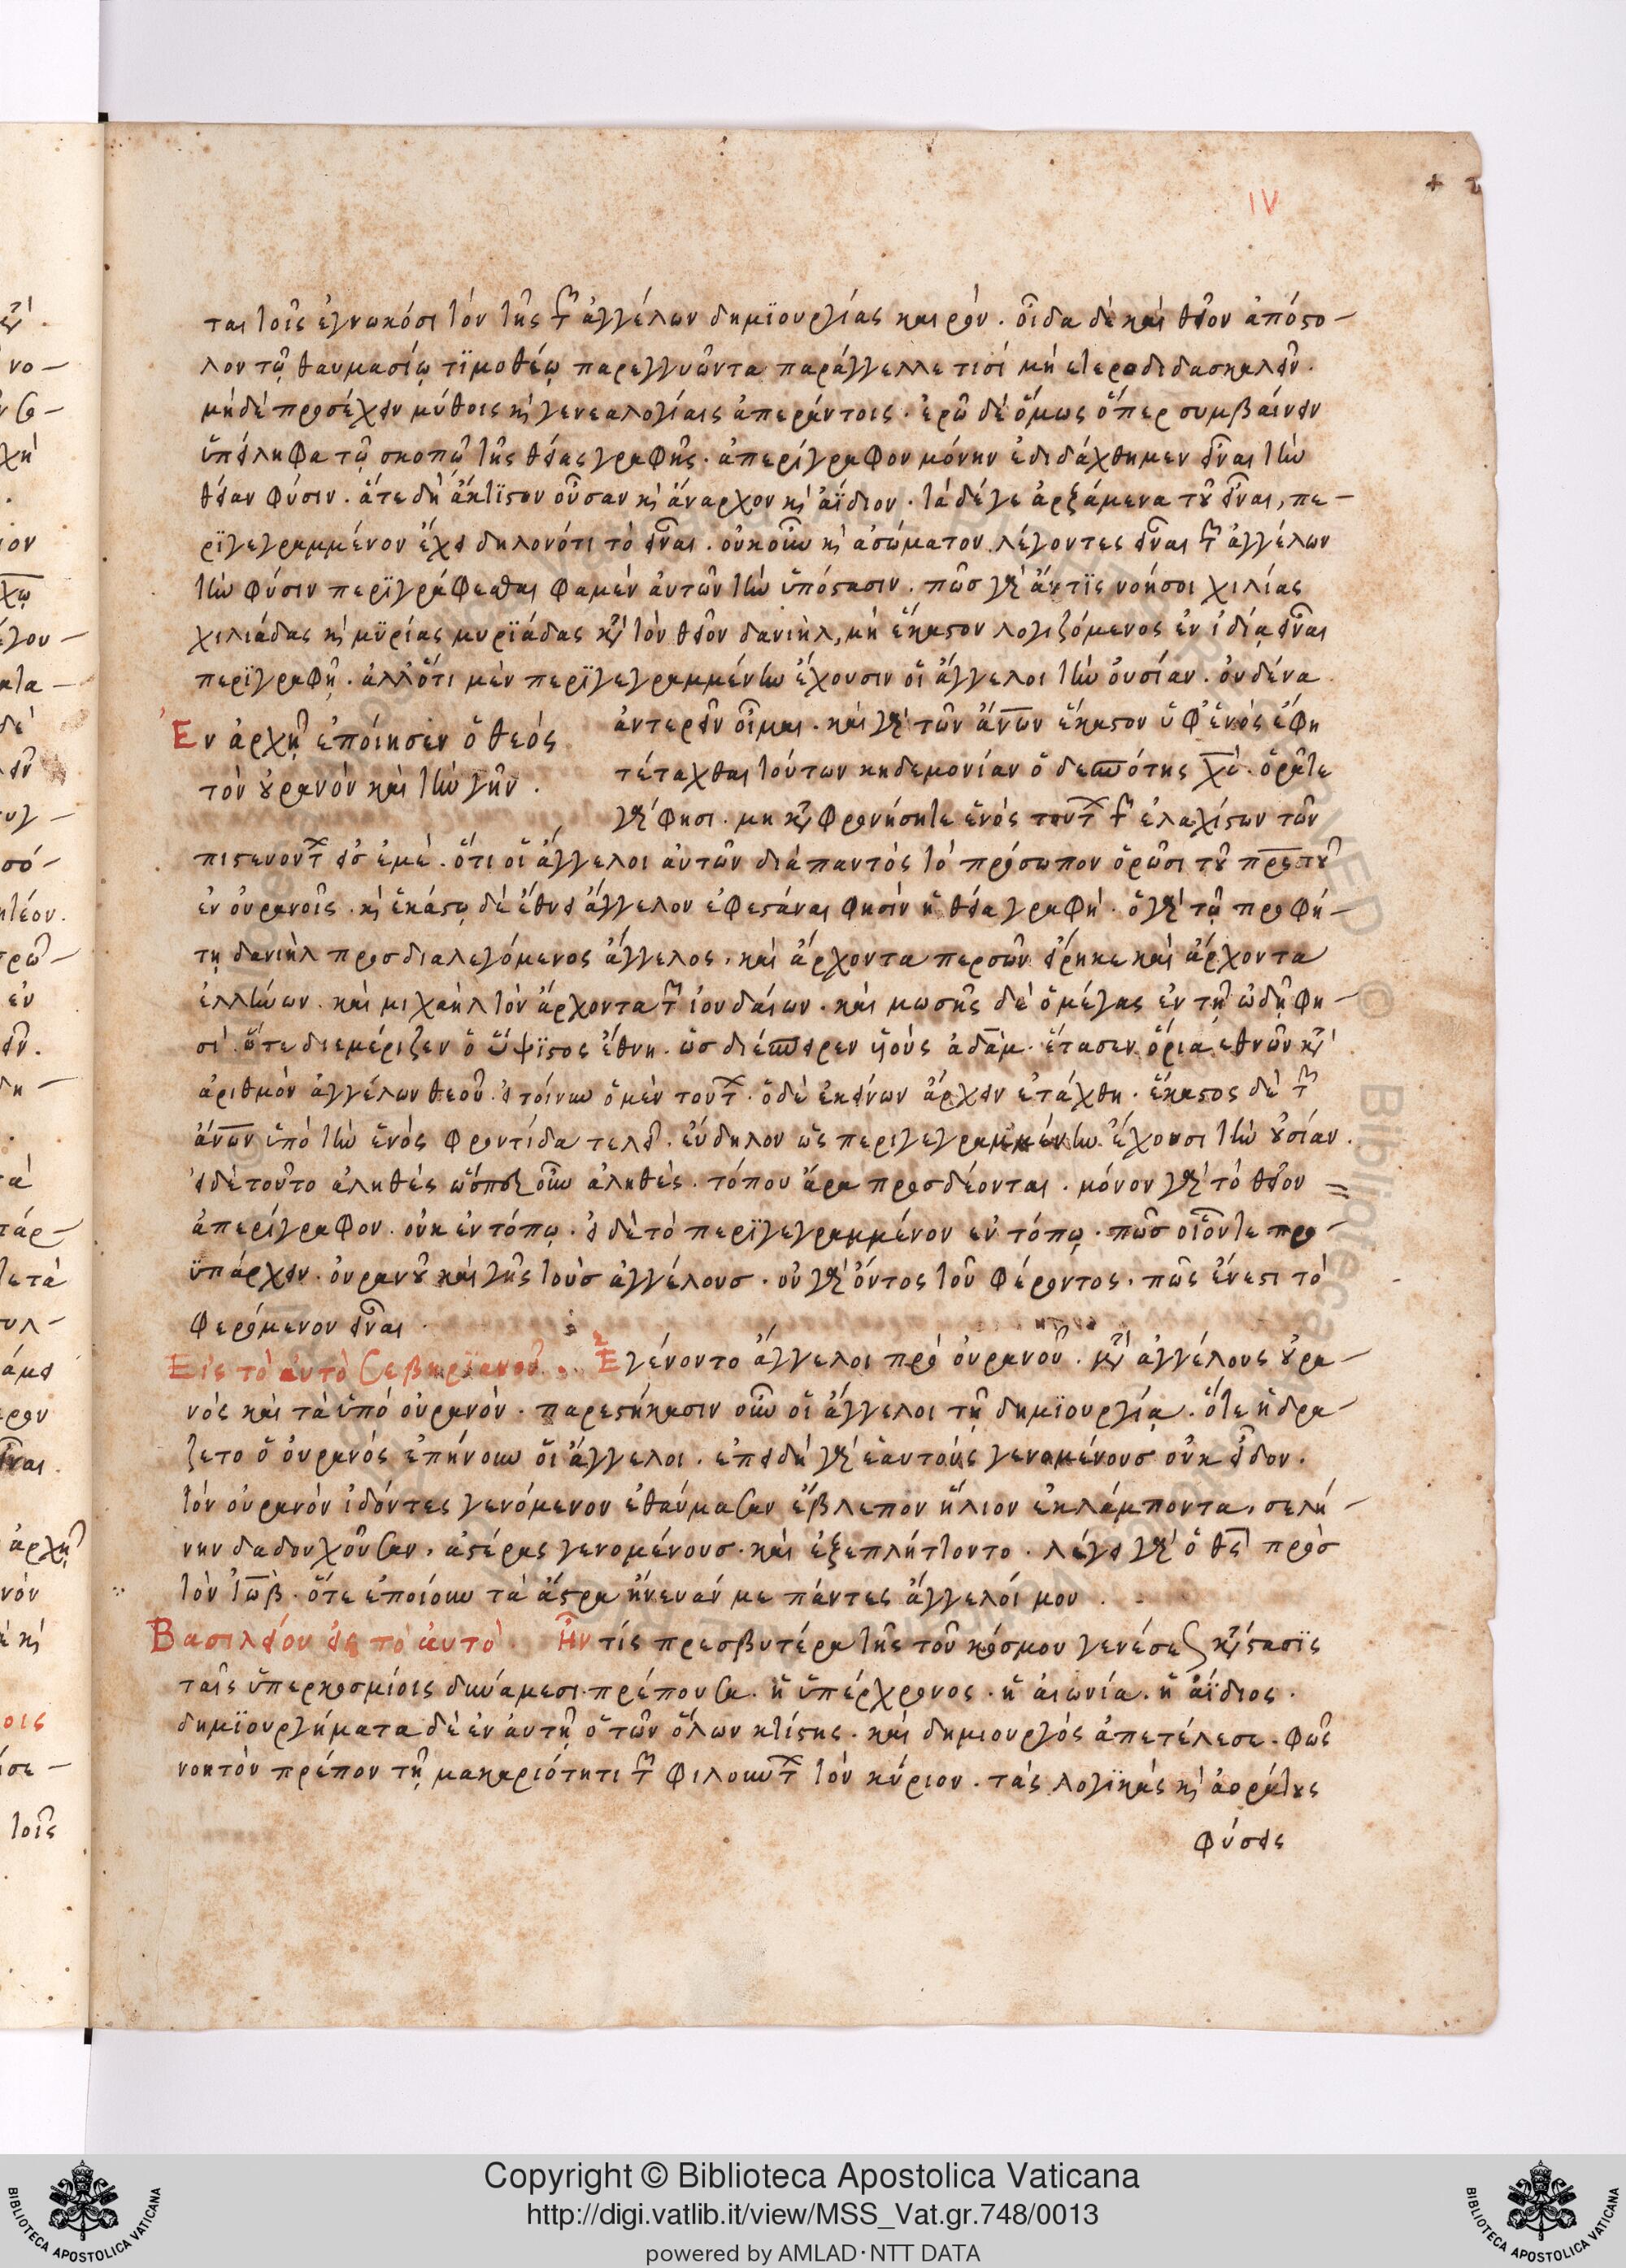 IV
ται τοῖς ἐγνωκόσι τὸν τῆς τῶν ἀγγέλων δημϊουργίας καιρόν. οἶδα δὲ καὶ θεῖον ἀπόστο-
λον τῷ θαυμασίῳ τϊμοθέῳ παρεγγυῶντα παράγγελλε τισὶ μὴ ετεροδιδασκαλεῖν.
μὴδὲ προσέχειν μύθοις καὶ γενεαλογίαις ἀπεράντοις. ἐρῶ δὲ ὅμως ὅπερ συμβαίνειν
ὑπείληφα τῷ σκοπῷ τῆς θείας γραφῆς. ἀπερίγραφον μόνην ἐδιδάχθημεν εἶναι τὴν
θείαν φύσιν. ἅτε δὴ ἄκτϊστον οὖσαν καὶ ἄναρχον καὶ ἀΐδιον. τὰ δέ γε ἀρξάμενα τοῦ εἶναι, πε-
ρϊγεγραμμένον ἔχει δηλονότι τὸ εἶναι. οὐκοῦν καὶ ασώματον λέγοντες εἶναι τῶν ἀγγέλων
τὴν φύσιν περϊγράφεσθαι φαμὲν ἀυτῶν τὴν ὑπόστασιν. πῶσ γὰρ ἄν τϊς νοήσοι χιλίας
χιλιάδας καὶ μϋρίας μυρϊάδας κατὰ τὸν θεῖον δανιὴλ, μὴ ἕκαστον λογιζόμενος ἐν ἰδίᾳ εἶναι
περϊγραφῇ. ἀλλ' ὅτι μὲν περϊγεγραμμένην ἔχουσιν οἱ ἄγγελοι τὴν ὀυσίαν. ὀυδένα
Ἐν ἀρχῇ ἐποίησεν ὁ θεός
τὸν οὐρανὸν καὶ τὴν γῆν.
ἀντερεῖν οἶμαι. καὶ γὰρ τῶν ἄνων ἕκαστον ὑφ' ἑνός ἔφη
τέταχθαι τούτων κηδεμονίαν ὁ δεσπότης χς. ὁρᾶτε
γάρ φησι. μη καταφρονήσητε ἑνός τούτων τῶν ἐλαχίστων τῶν
πιστευοντων εἰσ ἐμὲ. ὅτι οἱ ἄγγελοι ἀυτῶν διὰ παντὸς τὸ πρόσωπον ὁρῶσι τοῦ πρς τοῦ
ἐν οὐρανοῖς. καὶ ἑκάστῳ δὲ ἔθνει ἄγγελον ἐφεστάναι φησὶν ἡ θεία γραφή. ὁ γὰρ τῷ προφή-
τῃ δανιὴλ προσδιαλεγόμενος ἄγγελος. καὶ ἄρχοντα περσῶν εἴρηκε καὶ ἄρχοντα
ἑλλήνων. καὶ μιχαὴλ τὸν ἄρχοντα τῶν ἰουδαίων. καὶ μωσῆς δὲ ὁ μέγας ἐν τῇ ὠδῇ φη-
σί. ὅτε διεμέριζεν ὁ ὕψϊστος ἔθνη. ὡσ διέσπειρεν υἱοὺς ἀδὰμ. ἔστασεν ὅρια εθνῶν κατὰ
ἀριθμὸν ἀγγέλων θεοῦ. εἰ τοίνυν ὁ μὲν τουτων. ὁ δὲ ἐκείνων ἄρχειν ετάχθη. ἕκαστος δὲ τῶν
ἀνων ὑπὸ τὴν ἑνός φροντίδα τελεῖ. εὔδηλον ὡς περιγεγραμμένην ἔχουσι τὴν οὐσίαν.
εἰ δὲ τοῦτο ἀληθές ὥσπερ οὖν ἀληθὲς. τόπου ἄρα προσδέονται. μόνον γὰρ τὸ θεῖον
ἀπερίγραφον. οὐκ ἐν τόπῳ. εἰ δὲ τὸ περϊγεγραμμένον ἐν τόπῳ. πῶσ οἷόν τε προ-
ϋπάρχειν. ὀυρανοῦ καὶ γῆς τοὺσ ἀγγέλουσ. οὐ γὰρ ὄντος τοῦ φέροντος. πῶς ἔνεστι τὸ
φερόμενον εἶναι.
Εἰς τὸ ἀυτὸ Σεβηρϊανοῦ. Ἐγένοντο ἄγγελοι πρὸ ὀυρανοῦ. μετὰ ἀγγέλους οὐρα-
νὸς καὶ τὰ ὑπὸ οὐρανὸν. παρεστήκασιν οὖν οἱ ἄγγελοι τῇ δημϊουργίᾳ. ὅτε ἡδρα-
ζετο ὁ ὀυρανός ἐπήνουν ὁι ἄγγελοι. ἐπειδὴ γὰρ ἑαυτοὺς γενομένουσ οὐκ εἶδον.
τὸν οὐρανὸν ἰδόντες γενόμενον ἐθαύμασαν ἔβλεπον ἥλιον ἐκλάμποντα. σελή-
νην δαδουχοῦσαν. ἀστέρας γενομένουσ. καὶ ἐξεπλήττοντο. λέγει γὰρ ὁ θς πρὸσ
τὸν Ἰὼβ. ὅτε ἐποίουν τὰ ἄστρα ἤνεσάν με πάντες ἄγγελοί μου.
Βασιλείου εἰς τὸ ἀυτό. Ἦν τίς πρεσβυτέρα τῆς τοῦ κόσμου γενέσεως κατάστασϊς
ταῖς ὑπερκοσμίοις δυνάμεσι πρέπουσα. ἡ ὑπέρχρονος. ἡ ἀιωνία. ἡ ἀΐδιος.
δημϊουργήματα δὲ ἐν ἀυτῇ ὁ τῶν ὅλων κτίστης. καὶ δημιουργός ἀπετέλεσε. φῶς
νοητὸν πρέπον τῇ μακαριότητι τῶν φιλουντων τὸν κύριον. τὰς λογϊκὰς καὶ ἀοράτους
φύσεις
Copyright © Biblioteca Apostolica Vaticana
http://digi.vatlib.it/view/MSS_Vat.gr.748/0013
powered by AMLAD·NTT DATA
BIBLIOTECA APOSTOLICA VATICANA
BIBLIOTECA APOSTOLICA VATICANA